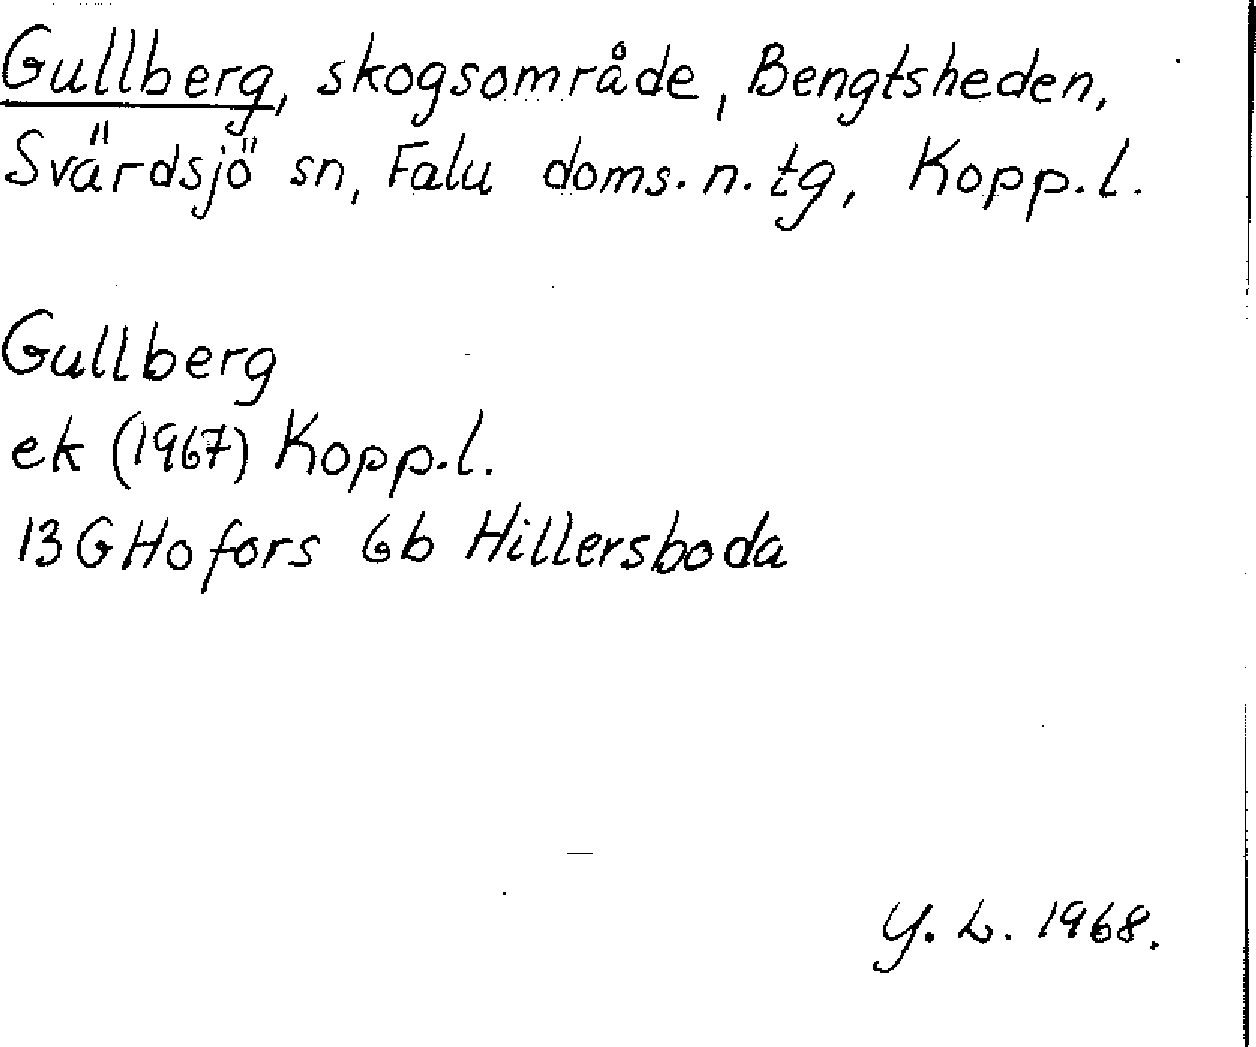 Gullberg, skogsområde, Bengtsheden,
Svärdsjö sn, Falu doms. n. tg, Kopp. l.
Gullberg
ek (1967) Kopp. l.
13 G Hofors 6b Hillersboda
Y. L. 1968.